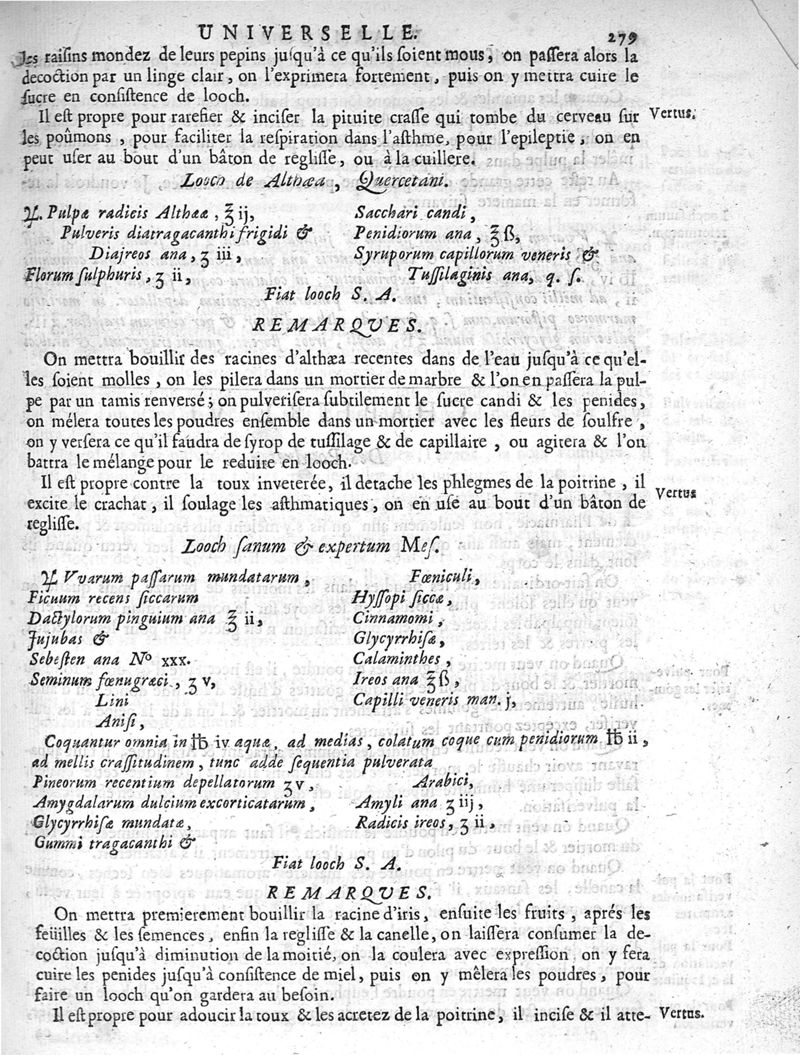 UNIVERSELLE. 279
les raisins mondez de leurs pepins jusqu'à ce qu'ils soient mous, on passera alors la
decoction par un linge clair, on l'exprimera fortement, puis on y mettra cuire le
sucre en consistence de looch.
Il est propre pour rarefier & inciser la pituite crasse qui tombe du cerveau sur
Vertus.
les poûmons, pour faciliter la respiration dans l'asthme, pour l'epileptie, on en
peut user au bout d'un bâton de reglisse, ou à la cuillere.
Looch de Althæa, Quercetani.
♃. Pulpæ radicis Althææ, ℥ ij,
Pulveris diatragacanthi frigidi &
Diajreos ana, ʒ iii,
Florum sulphuris, ʒ ii,
Sacchari candi,
Penidiorum ana, ℥ ß,
Syruporum capillorum veneris &
Tussilaginis ana, q. s.
Fiat looch S. A.
REMARQUES.
On mettra bouillir des racines d'althæa recentes dans de l'eau jusqu'à ce qu'el-
les soient molles, on les pilera dans un mortier de marbre & l'on en passera la pul-
pe par un tamis renversé; on pulverisera subtilement le sucre candi & les penides,
on mélera toutes les poudres ensemble dans un mortier avec les fleurs de soulfre,
on y versera ce qu'il faudra de syrop de tussilage & de capillaire, ou agitera & l'on
battra le mélange pour le reduire en looch.
Il est propre contre la toux inveterée, il detache les phlegmes de la poitrine, il
Vertus
excite le crachat, il soulage les asthmatiques, on en use au bout d'un bâton de
reglisse.
Looch sanum & expertum Mes.
♃ Vvarum passarum mundatarum,
Ficuum recens siccarum
Dactylorum pinguium ana ℥ ii,
Jujubas &
Sebesten ana N° xxx.
Seminum fœnugræci, ʒ v,
Lini
Anisi,
Fœniculi,
Hyssopi siccæ,
Cinnamomi,
Glycyrrhisæ,
Calaminthes,
Ireos ana ℥ ß,
Capilli veneris man. j,
Coquantur omnia in ℔ iv aquæ, ad medias, colatum coque cum penidiorum ℔ ii,
ad mellis crassitudinem, tunc adde sequentia pulverata
Pineorum recentium depellatorum ʒ v,
Amygdalarum dulcium excorticatarum,
Glycyrrhisæ mundatæ,
Gummi tragacanthi &
Arabici,
Amyli ana ʒ iij,
Radicis ireos, ʒ ii,
Fiat looch S. A.
REMARQUES.
On mettra premierement bouillir la racine d'iris, ensuite les fruits, aprés les
feüilles & les semences, enfin la reglisse & la canelle, on laissera consumer la de-
coction jusqu'à diminution de la moitié, on la coulera avec expression, on y fera
cuire les penides jusqu'à consistence de miel, puis on y mêlera les poudres, pour
faire un looch qu'on gardera au besoin.
Il est propre pour adoucir la toux & les acretez de la poitrine, il incise & il atte-
Vertus.